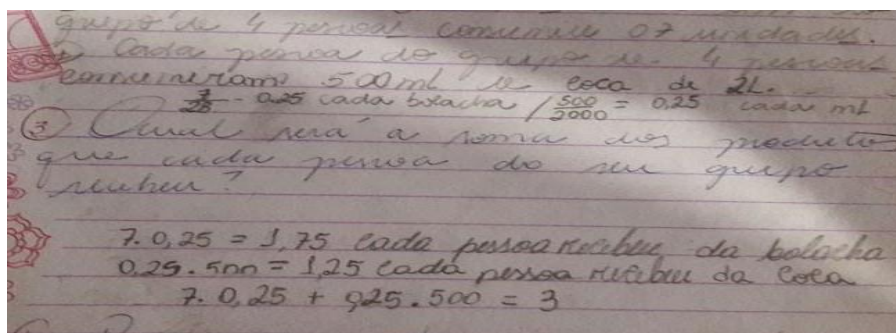 grupo de 4 pessoas consumiu 07 unidades.
Cada pessoa do grupo de 4 pessoas
consumiram 500 ml de coca de 2L.
7/28 - 0,25 cada bolacha / 500/2000 = 0,25 cada ml
3 Qual será a soma dos produtos
que cada pessoa do seu grupo
recebeu?
7. 0,25 = 1,75 cada pessoa recebeu da bolacha
0,25. 500 = 1,25 cada pessoa recebeu da Coca
7. 0,25 + 0,25. 500 = 3